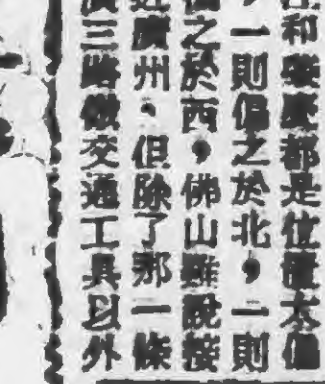 和肇慶都是位置太偏
，一則偏之於北，二則
偏之於西，佛山雖說接
近廣州，但除了那一條
廣三路做交通工具以外